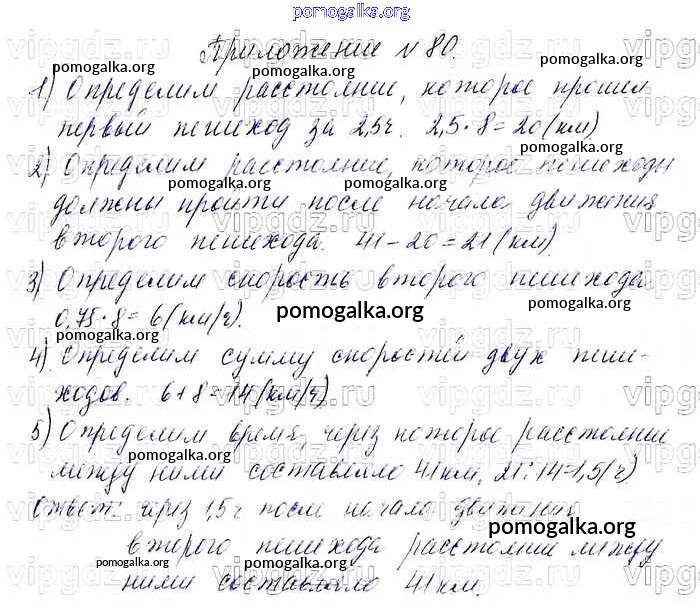 pomogalka.org
Приложение №80.
pomogalka.org pomogalka.org
1) Определим расстояние, которое прошел
pomogalka.org
первый пешеход за 2,5ч. 2,5·8=20(км)
2) Определим расстояние, которое пешеходы
pomogalka.org pomogalka.org pomogalka.org
должны пройти после начала движения
второго пешехода. 41-20=21(км).
3) Определим скорость второго пешехода
0,75·8=6(км/ч).
pomogalka.org pomogalka.org pomogalka.org
4) Определим сумму скоростей двух пеше-
ходов. 6+8=14(км/ч)
pomogalka.org
5) Определим время, через которое расстояние
pomogalka.org
между ними составляло 41км. 21:14=1,5(ч)
Ответ: через 1,5ч после начала движения
pomogalka.org
второго пешехода расстояние между
ними составляло 41км.
vipgdz.ru